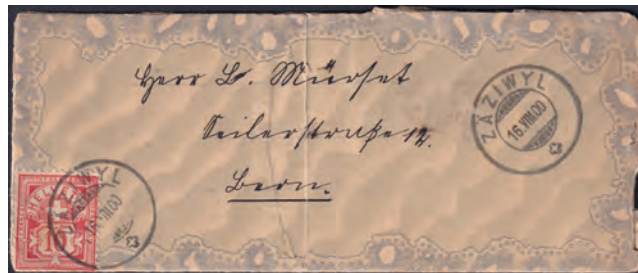 Herr B. Mürset
Seilerstraße 12.
Bern.
ZÄZIWYL
16.VIII.00
HELVETIA
10
ZÄZIWYL
16.VIII.00